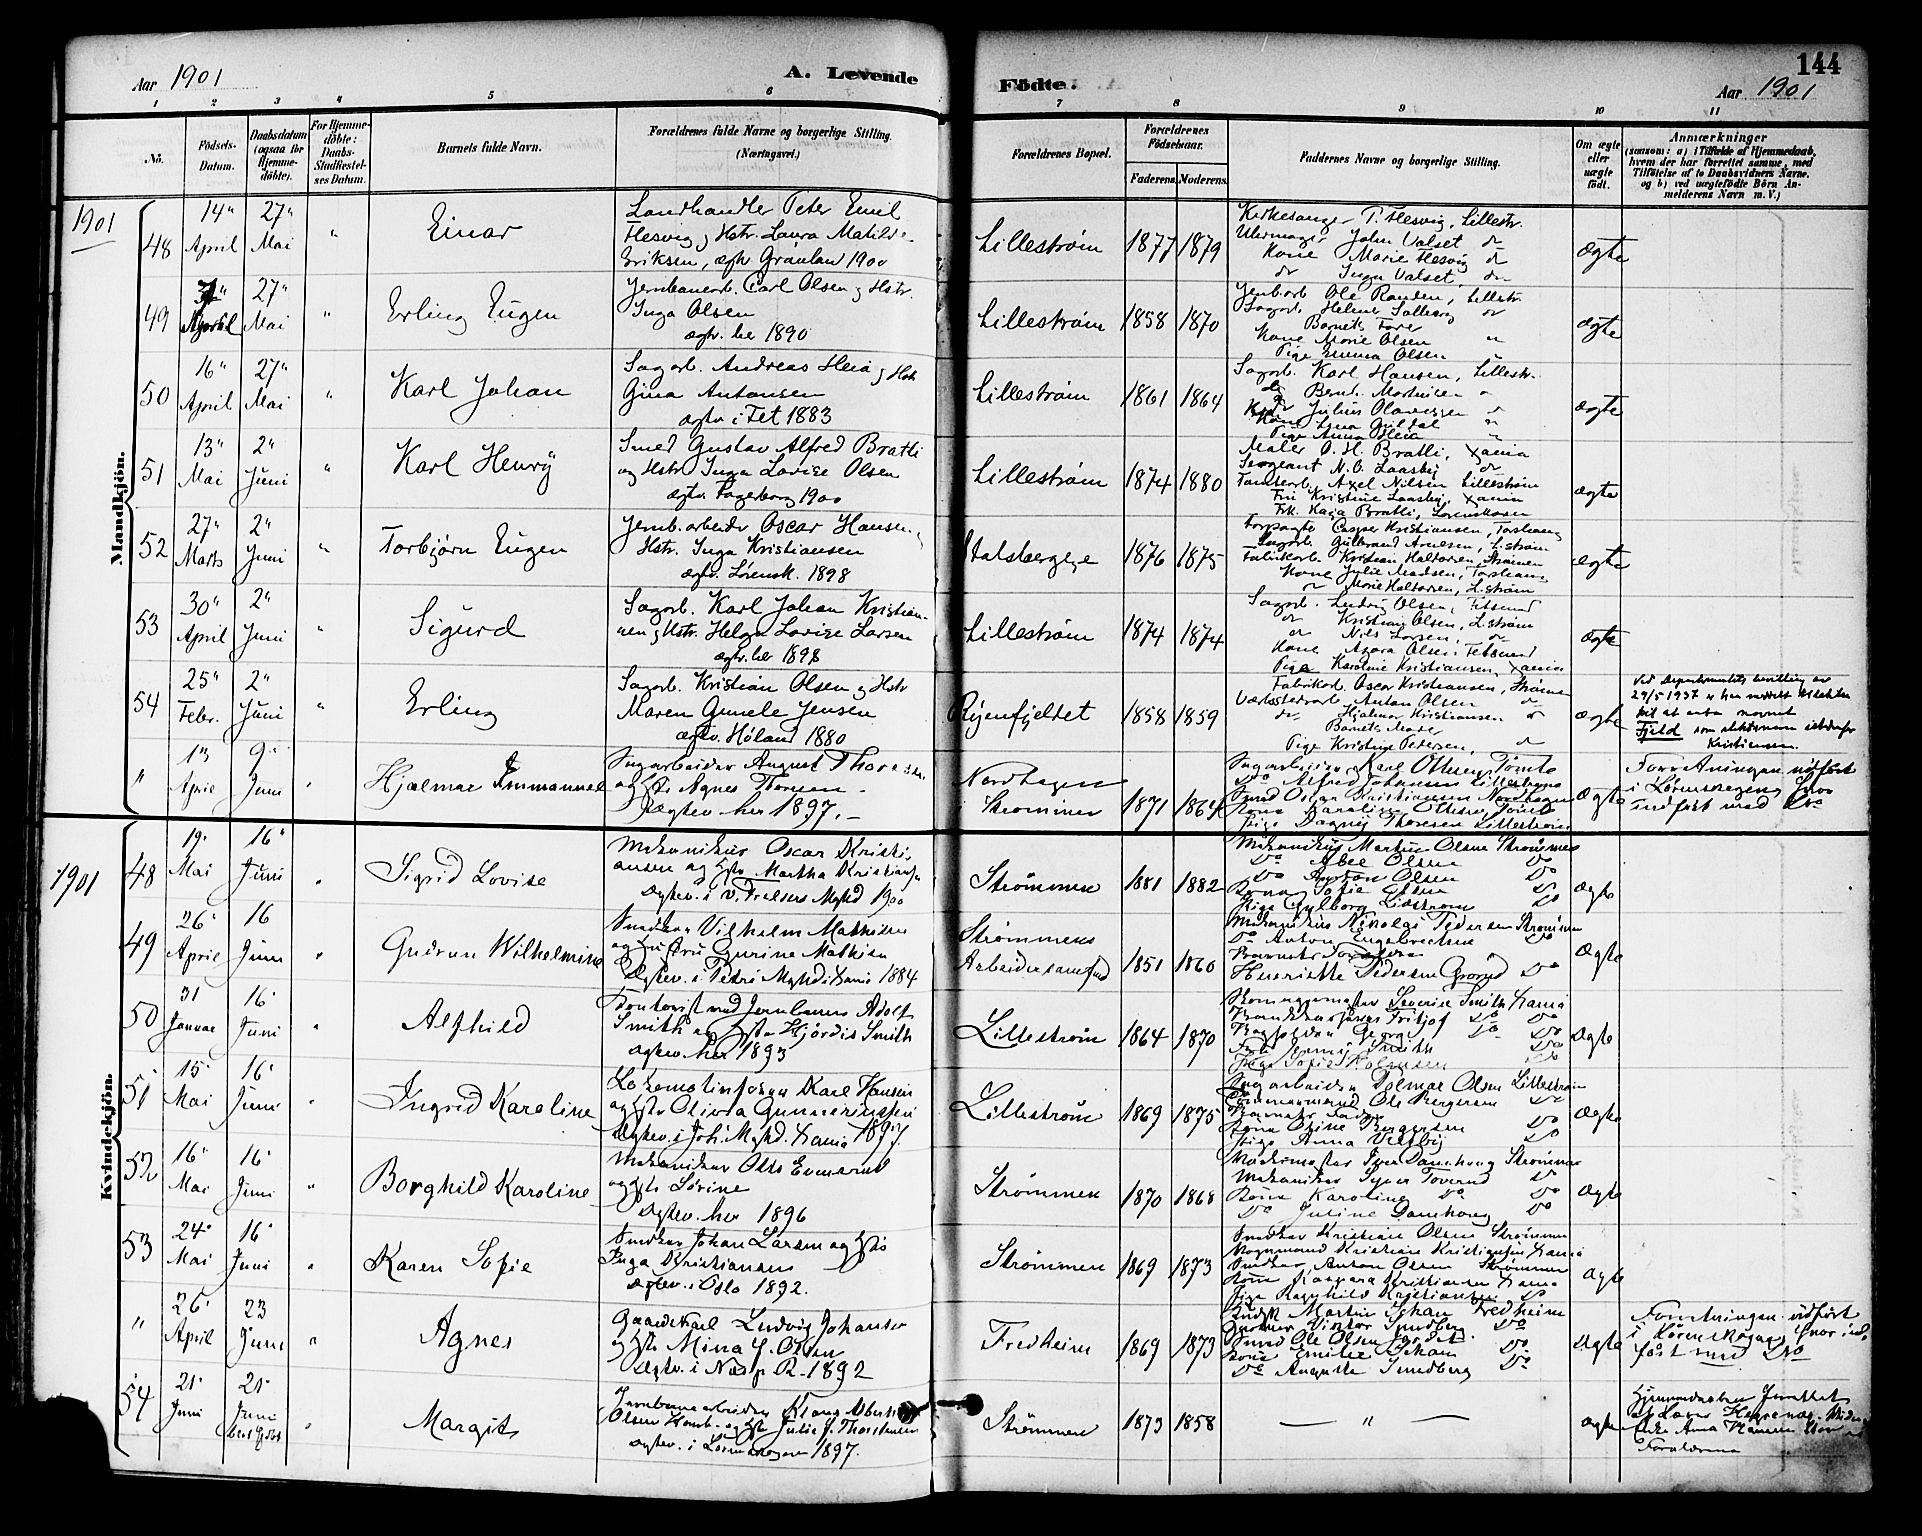 144
Aar 1901
A. Levende
Födte.
Aar 1901
1 2 3 4 5 6 7 8 9 10 11
No.
Födsels-Datum.
Daabsdatum (ogsaa for Hjemmedöbte).
For Hjemmedöbte: Daabs-Stadfæstelses Datum.
Barnets fulde Navn.
Forældrenes fulde Navne og borgerlige Stilling. (Næringsvei.)
Forældrenes Bopæl.
Forældrenes Födselsaar.
Faderens. Moderens.
Faddernes Navne og borgerlige Stilling.
Om ægte eller uægte födt.
Anmærkninger
(saasom: a) i Tilfælde af Hjemmedaab,
hvem der har forrettet samme, med
Tilföielse af to Daabsvidners Navne,
og b) ved uægtefödte Börn An-
melderens Navn m. V.)
Mandkjön.
1901
48 14" April 27" Mai " Einar
Landhandler Peter Emil
Hesvig og Hstr. Laura Matilde
Eriksen, ægtv. Grønland 1900
Lillestrøm 1877 1879
Kirkesanger P. Hesvig, Lillestr.
Uhrmager John Valset do
Kone Marie Hesvig do
do Inga Valset, do
ægte
49 April 27" Mai " Erling Eugen
Jernbanearb. Carl Olsen og Hstr.
Inga Olsen
ægtv. her 1890
Lillestrøm 1858 1870
Jenb.arb Ole Randen, Lillestr.
Sagarb. Helmer Solberg do
Barnets Fader
Kone Marie Olsen "
Pige Emma Olsen "
ægte
50 16" April 27" Mai " Karl Johan
Sagarb. Andreas Heia og Hstr
Gina Antonsen
ægtv. i Fet 1883
Lillestrøm 1861 1864
Sagarb. Karl Hansen, Lillestr.
do Bernt Martinsen "
Julius Olavesen "
Kone Lina Guldal "
Pige Anna Heia "
ægte
51 13" Mai 2" Juni " Karl Henry
Smed Gustav Alfred Bratli
og Hstr. Inga Lovise Olsen
ægtv. Fagerborg 1900
Lillestrøm 1874 1880
Maler O. H. Bratli, Xania
Sergeant N. O. Laasby do
Axel Nilsen Lillestrøm
Fru Kristine Laasby, Xania
Frk. Kaja Bratli, Lørenskoven
ægte
52 27" Marts 2" Juni " Torbjørn Eugen
Jernb.arbeider Oscar Hansen og
Hstr. Inga Kristiansen
ægtv. Lørensk. 1898
Stalsbergeie 1876 1875
Forpagter Casper Kristiansen,
Sagarb. Gulbrand Arnesen, L.strøm
Fabrikarb. Kristian Haltorsen, Strømmen
Kone Julie Madsen,
do Marie Haltorsen, L.strøm
ægte
53 30" April 2" Juni " Sigurd
Sagarb. Karl Johan Kristian-
sen og Hstr. Helga Lovise Larsen
ægtv. her 1898
Lillestrøm 1874 1874
Sagarb. Ludvig Olsen, Fetsund
do Kristian Olsen, L.strøm
do Nils Larsen, do
Kone Asora Olsen, Fetsund
Pige Karoline Kristiansen, Xania
ægte
54 25" Febr. 2" Juni " Erling
Sagarb. Kristian Olsen og Hstr
Maren Gunele Jensen
ægtv. Høland 1880
Ryenfjeldet 1858 1859
Fabrikarb. Oscar Kristiansen, Strømmen
Værkstedarb. Anton Olsen do
do Hjalmar Kristiansen do
Barnets Moder
Pige Kristine Pedersen, do
ægte
Ved departementets bevilling av
29/5 1937 er han meddelt tilladelse
til at anta navnet
Fjeld som slektsnavn istedenfor
Kristiansen.
" 13 April 9 Juni " Hjalmar Emmanuel
Sagarbeider August Thoresen
og Agnes Thoresen
Ægtev. her 1897.-
Nordhagen
Strømmen 1871 1864
Sagarbeider Karl Ottesen, Tomte
Do Alfred Johansen Lillestrøm
Smed Oscar Kristiansen Nordhagen
Kone Karoline Ottesen Tomte
Pige Dagny Thoresen Lillestrøm
ægte
Forretningen udført
i Lørenskogen, hvor
indført med No
Kvindekjön.
1901
48 19. Mai 16" Juni " Sigrid Lovise
Mekanikus Oscar Kristi-
ansen og Hstr Martha Kristiansen
Ægtev. i V. Frelsers Mghd 1900
Strømmen 1881 1882
Mekanikus Martin Olsen Strømmen
Do Abel Olsen Do
Do Anton Olsen Do
Kone Sofie Olsen Do
Pige Gulborg Lidstrøm Do
ægte
49 26 April 16 Juni " Gudrun Wilhelmine
Snedker Vilhelm Mathisen
og Hustru Gurine Mathisen
Ægtev. i Petri Mghd. Xania 1884
Strømmens
Arbeidersamfund 1851 1860
Mekanikus Nikolai Pedersen Strømmen
Do Anton Engebretsen Do
Barnets Forældre
Henriette Pedersen Grorud Do
ægte
50 31 Januar 16 Juni " Alfhild
Kontorist ved Jernbanen Adolf
Smith og Hstr Hjørdis Smith
Ægtev. her 1893
Lillestrøm 1864 1870
Severine Smith Xania
Fritjof Do Do
Georg Do Do
Frk Jenny Smith Do
Pige Sofie Do
ægte
51 15 Mai 16 Juni " Ingrid Karoline
Lokomotivfører Karl Hansen
og Hstr Olivia
Ægtev. i Joh. Mghd. Xania 1897.
Lillestrøm 1869 1875
Sagarbeider Delmar Olsen Lillestrøm
Tømmermand Ole Bergersen Do
Barnets Fader
Kone Oline Bergersen Do
Pige Anna Do
ægte
52 16 Mai 16 Juni " Borghild Karoline
Mekaniker Otto Evensrud
og Hstr Lovine
Ægtev. her 1896
Strømmen 1870 1868
Maskinmester Iver Damhoug Strømmen
Mekaniker Syver Toverud Do
Kone Karoline Do Do
Do Juline Damhoug Do
ægte
53 24 Mai 16 Juni " Karen Sofie
Snedker Johan Larsen og Hstr
Inga Kristiansen
Ægtev. i Oslo 1892.
Strømmen 1869 1873
Snedker Kristian Olsen Strømmen
Vognmand Kristian Kristiansen Xania
Snedker Anton Olsen Strømmen
Kone Kaspara Kristiansen Xania
Pige Ragnhild Kristiansen Do
ægte
" 26 April 23 Juni " Agnes
Gaardskarl Ludvig Johansen
og Hstr Mina J. Olsen
Ægtv. i Næs p. R. 1892
Fredheim 1869 1873
Martin Johan Fredheim
Viktor Sundberg Do
Smed Ole Olsen Do
Kone Emilie Johan Do
Do Auguste Sundberg Do
ægte
Forretningen udført
i Lørenskogen, hvor ind-
ført med No
54 21 Juni 21 Juni " Margit
Jernbanearbeider Klaus Albert
Olsen og Hstr Julie J. Thorstensen
Ægtev. i Lørenskogen 1897.
Strømmen 1873 1858
— " —
ægte
Hjemmedaaben forrettet
af
Enke Anna Hansen
Forældrene